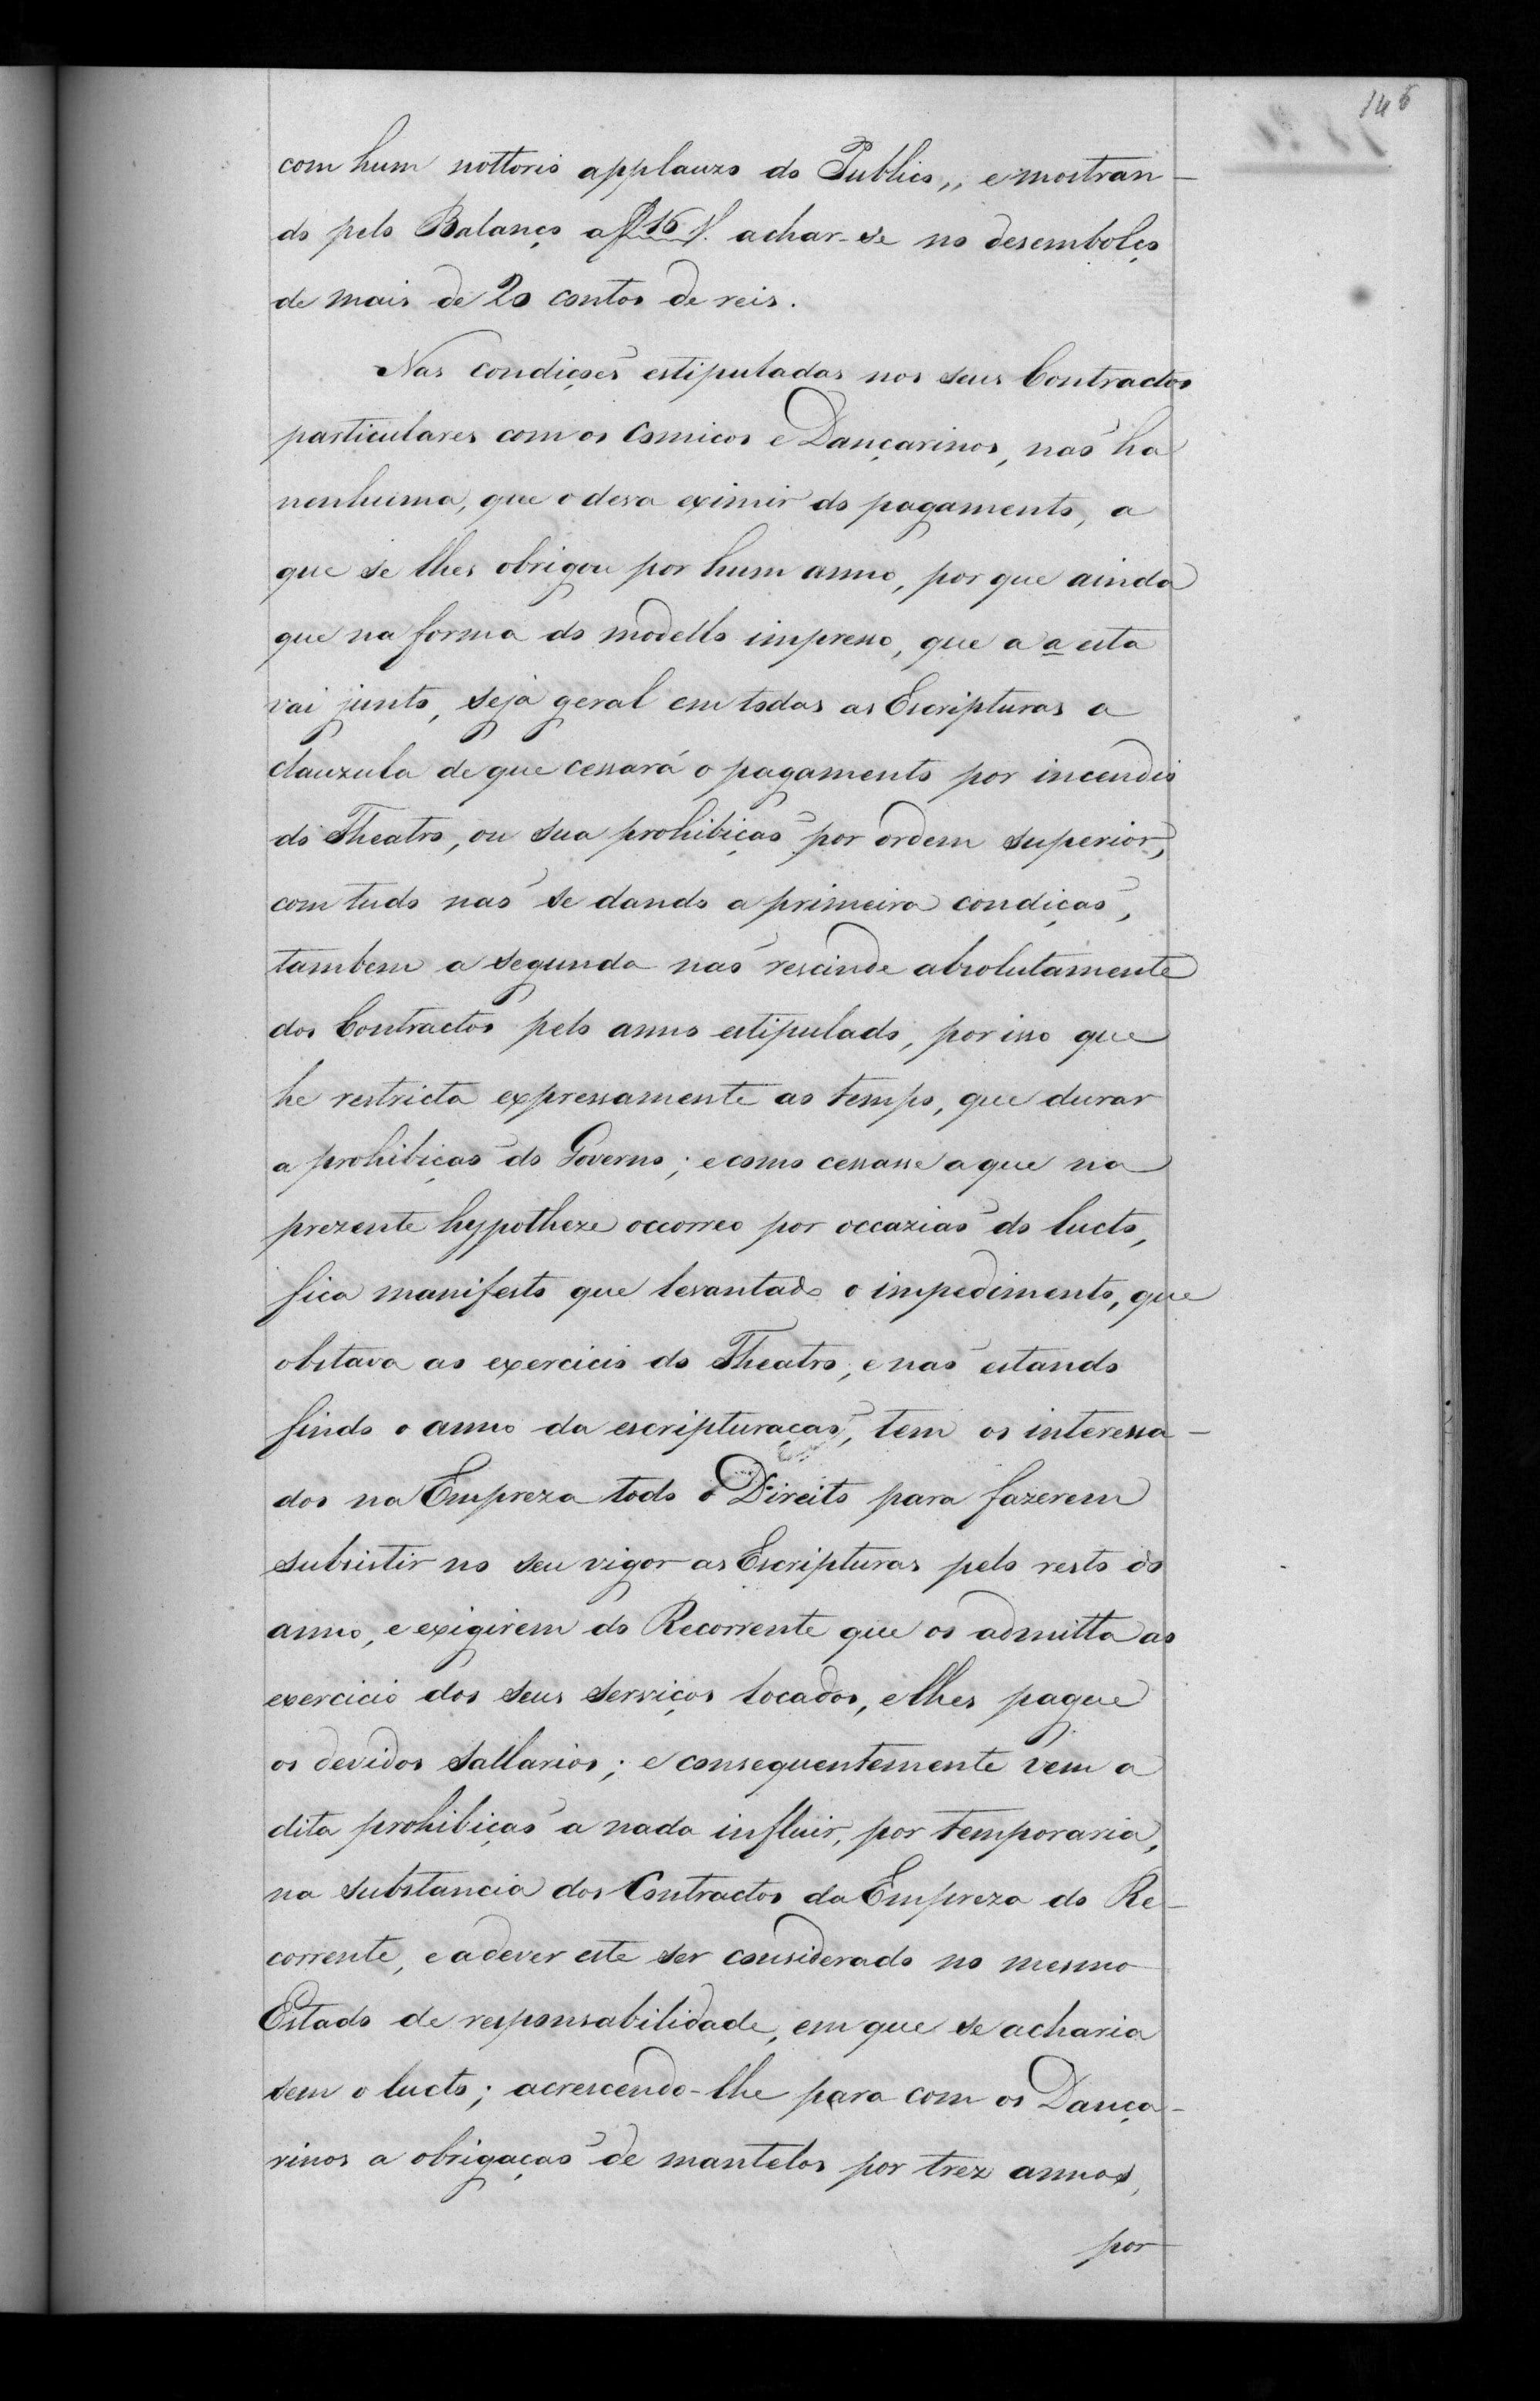 146
com hum nottorio applauzo do Publico,, e mostran-
do pelo Balanço a f 16 f. achar-se no desembolço
de mais de 20 contos de reis.
Nas condiçoẽs estipuladas nos seus Contractos
particulares com os Comicos e Dançarinos, naõ ha
nenhuma, que o deva eximir do pagamento, a
que se lhes obrigou por hum anno, por que ainda
que na forma do modello impresso, que a a esta
vai junto, seja geral em todas as Escripturas a
clauzula de que cessará o pagamento por incendio
do Theatro, ou sua prohibiçaõ por ordem superior,
com tudo naõ se dando a primeira condiçaõ,
tambem a segunda naõ rescinde absolutamente
dos Contractos pelo anno estipulado, por isso que
he restricta expressamente ao tempo, que durar
a prohibiçaõ do Governo; e como cessasse a que na
prezente hypotheze occorreo por occaziaõ do lucto,
fica manifesto que levantado o impedimento, que
obstava ao exercicio do Theatro, e naõ estando
findo o anno da escripturaçaõ, tem os interessa-
dos na Empreza todo o Direito para fazerem
subsistir no seu vigor as Escripturas pelo resto do
anno, e exigirem do Recorrente que os admitta ao
exercicio dos seus serviços locados, e lhes pague
os devidos sallarios; e consequentemente vem a
dita prohibiçaõ a nada influir, por temporaria,
na substancia dos Contractos da Empreza do Re-
corrente, e a dever este ser considerado no mesmo
Estado de responsabilidade, em que se acharia
sem o lucto; acrescendo-lhe para com os Dança-
rinos a obrigaçaõ de mantelos por trez annos,
por